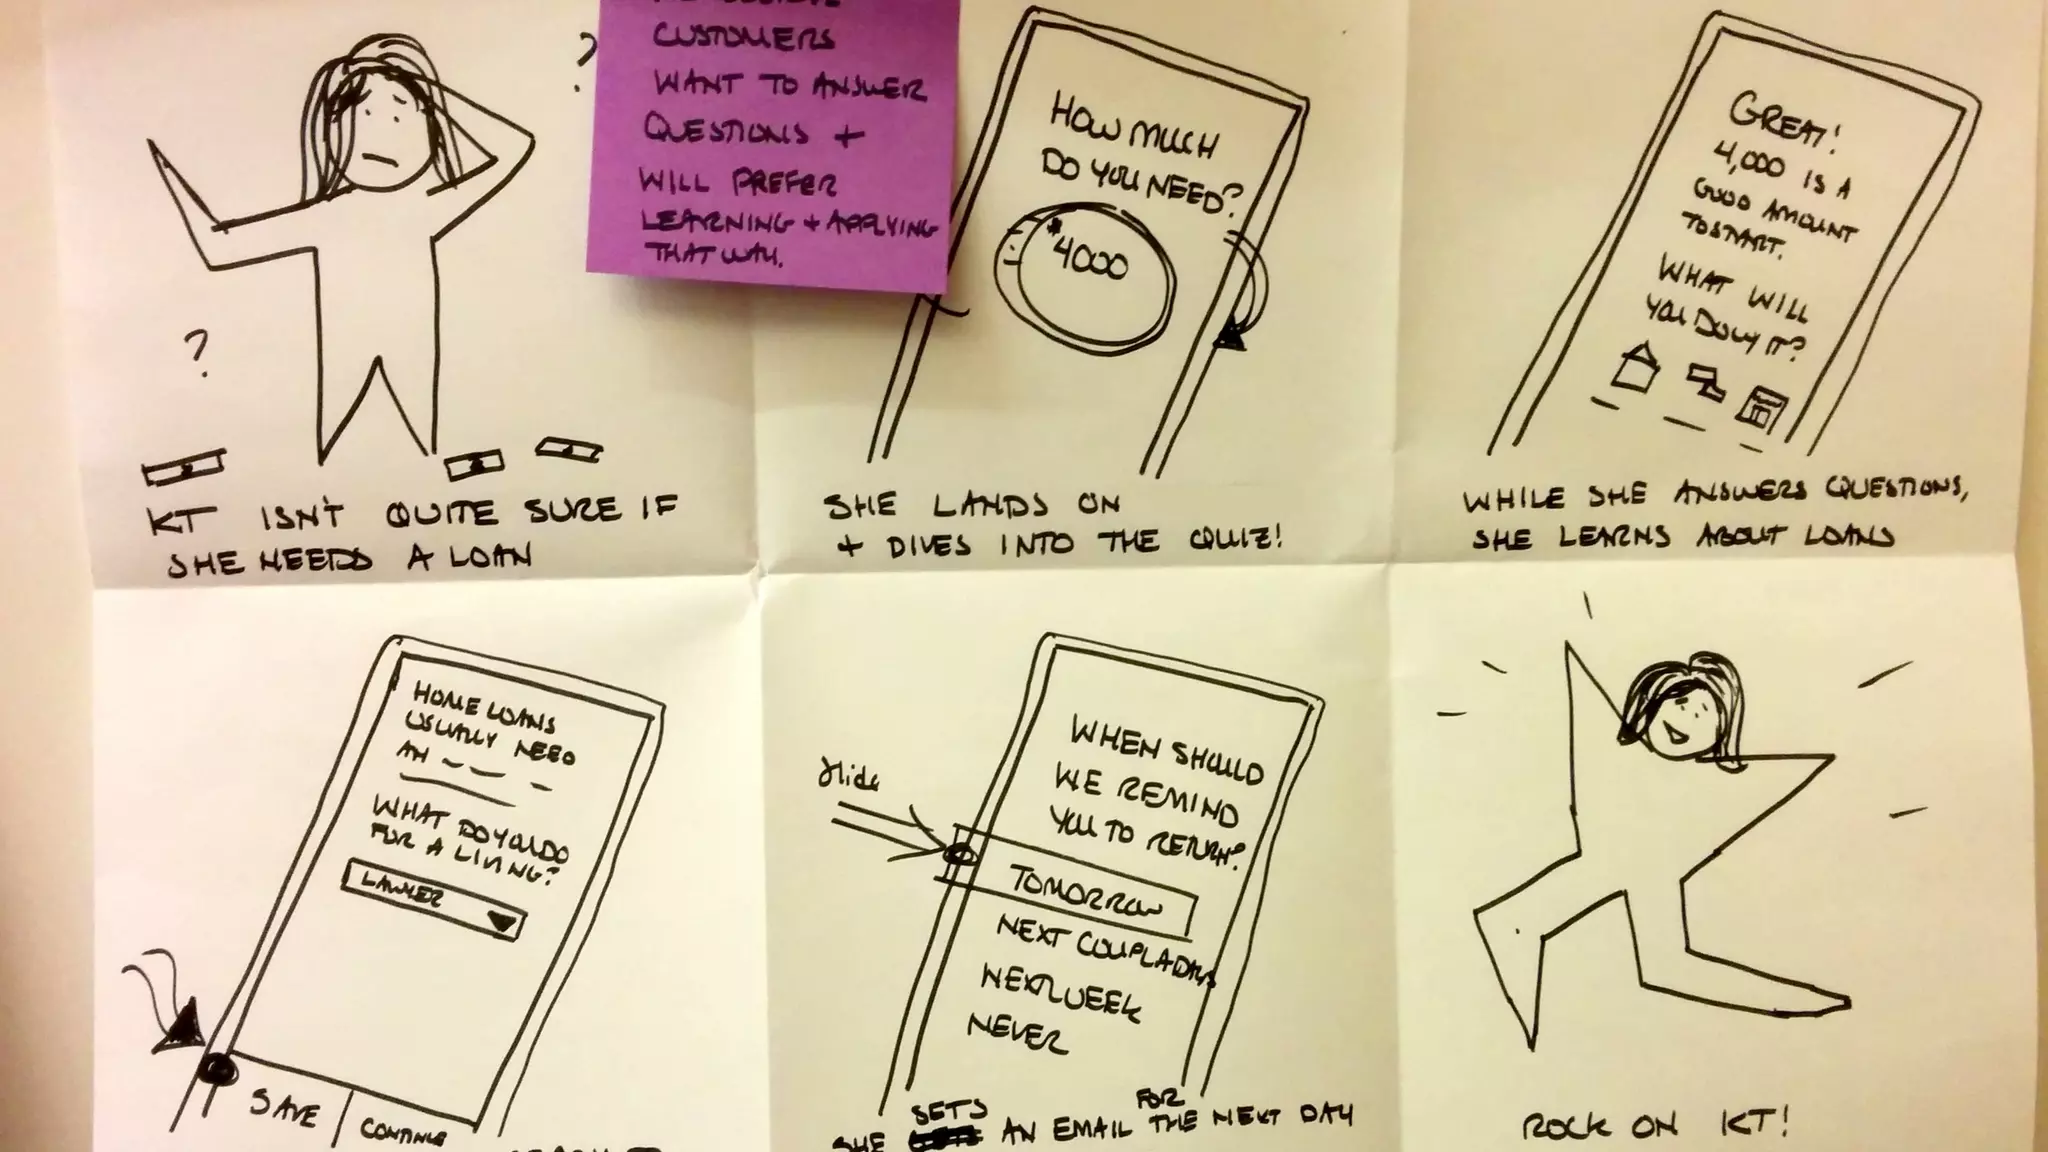 ?
?
KT ISN'T QUITE SURE IF
SHE NEEDS A LOAN
CUSTOMERS
WANT TO ANSWER
QUESTIONS +
WILL PREFER
LEARNING + APPLYING
THAT WAY.
HOW MUCH
DO YOU NEED?
$4000
SHE LANDS ON
+ DIVES INTO THE QUIZ!
GREAT!
4,000 IS A
GOOD AMOUNT
TO START.
WHAT WILL
YOU DO W/ IT?
WHILE SHE ANSWERS QUESTIONS,
SHE LEARNS ABOUT LOANS
HOME LOANS
USUALLY NEED
AN
WHAT DO YOU DO
FOR A LIVING?
LAWYER
SAVE
CONTINUE
Slide
WHEN SHOULD
WE REMIND
YOU TO RETURN?
TOMORROW
NEXT COUPLA DAYS
NEXT WEEK
NEVER
SHE SETS AN EMAIL FOR THE NEXT DAY
ROCK ON KT!